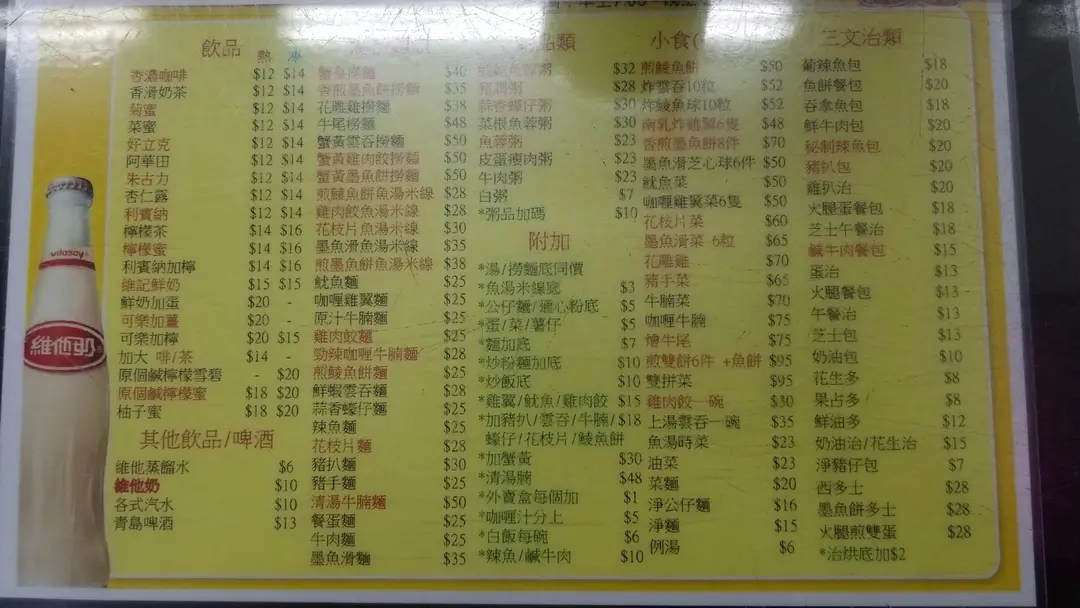 飲品
熱 凍
香濃咖啡 $12 $14
香滑奶茶 $12 $14
菊蜜 $12 $14
菜蜜 $12 $14
好立克 $12 $14
阿華田 $12 $14
朱古力 $12 $14
杏仁露 $12 $14
利賓納 $12 $14
檸檬茶 $14 $16
檸檬蜜 $14 $16
利賓納加檸 $14 $16
維記鮮奶 $15 $15
鮮奶加蛋 $20 -
可樂加薑 $20 -
可樂加檸 $20 $15
加大 啡/茶 $14 -
原個鹹檸檬雪碧 - $20
原個鹹檸檬蜜 $18 $20
柚子蜜 $18 $20
其他飲品/啤酒
維他蒸餾水 $6
維他奶 $10
各式汽水 $10
青島啤酒 $13
vitasoy
維他奶
$40
香煎墨魚餅撈麵 $35
花雕雞撈麵 $38
牛尾撈麵 $48
蟹黃雲吞撈麵 $50
蟹黃雞肉餃撈麵 $50
蟹黃墨魚餅撈麵 $50
煎鯪魚餅魚湯米線 $28
雞肉餃魚湯米線 $28
花枝片魚湯米線 $30
墨魚滑魚湯米線 $35
煎墨魚餅魚湯米線 $38
魷魚麵 $25
咖喱雞翼麵 $25
原汁牛腩麵 $25
雞肉餃麵 $25
勁辣咖喱牛腩麵 $28
煎鯪魚餅麵 $25
鮮蝦雲吞麵 $28
蒜香蠔仔麵 $25
辣魚麵 $25
花枝片麵 $28
豬扒麵 $30
豬手麵 $25
清湯牛腩麵 $50
餐蛋麵 $25
牛肉麵 $25
墨魚滑麵 $35
$32
$28
蒜香蠔仔粥 $30
菜根魚蓉粥 $30
魚蓉粥 $23
皮蛋瘦肉粥 $23
牛肉粥 $23
白粥 $7
*粥品加碼 $10
附加
*湯/撈麵底同價
*魚湯米線底 $3
*公仔麵/通心粉底 $5
*蛋/菜/薯仔 $5
*麵加底 $7
*炒粉麵加底 $10
*炒飯底 $10
*雞翼/魷魚/雞肉餃 $15
*加豬扒/雲吞/牛腩/ $18
蠔仔/花枝片/鯪魚餅
*加蟹黃 $30
*清湯腩 $48
*外賣盒每個加 $1
*咖喱汁分上 $5
*白飯每碗 $6
*辣魚/鹹牛肉 $10
小食(
煎鯪魚餅 $50
炸雲吞10粒 $52
炸鯪魚球10粒 $52
南乳炸雞翼6隻 $48
香煎墨魚餅8件 $70
墨魚滑芝心球6件 $50
魷魚菜 $50
咖喱雞翼菜6隻 $50
花枝片菜 $60
墨魚滑菜 6粒 $65
花雕雞 $70
豬手菜 $65
牛腩菜 $70
咖喱牛腩 $75
燴牛尾 $75
煎雙餅6件 +魚餅 $95
雙拼菜 $95
雞肉餃一碗 $30
上湯雲吞一碗 $35
魚湯時菜 $23
油菜 $23
菜麵 $20
淨公仔麵 $16
淨麵 $15
例湯 $6
三文治類
葡辣魚包 $18
魚餅餐包 $20
吞拿魚包 $18
鮮牛肉包 $20
秘制辣魚包 $20
豬扒包 $20
雞扒治 $20
火腿蛋餐包 $18
芝士午餐治 $18
鹹牛肉餐包 $15
蛋治 $13
火腿餐包 $13
午餐治 $13
芝士包 $13
奶油包 $10
花生多 $8
果占多 $8
鮮油多 $12
奶油治/花生治 $15
淨豬仔包 $7
西多士 $28
墨魚餅多士 $28
火腿煎雙蛋 $28
*治烘底加$2